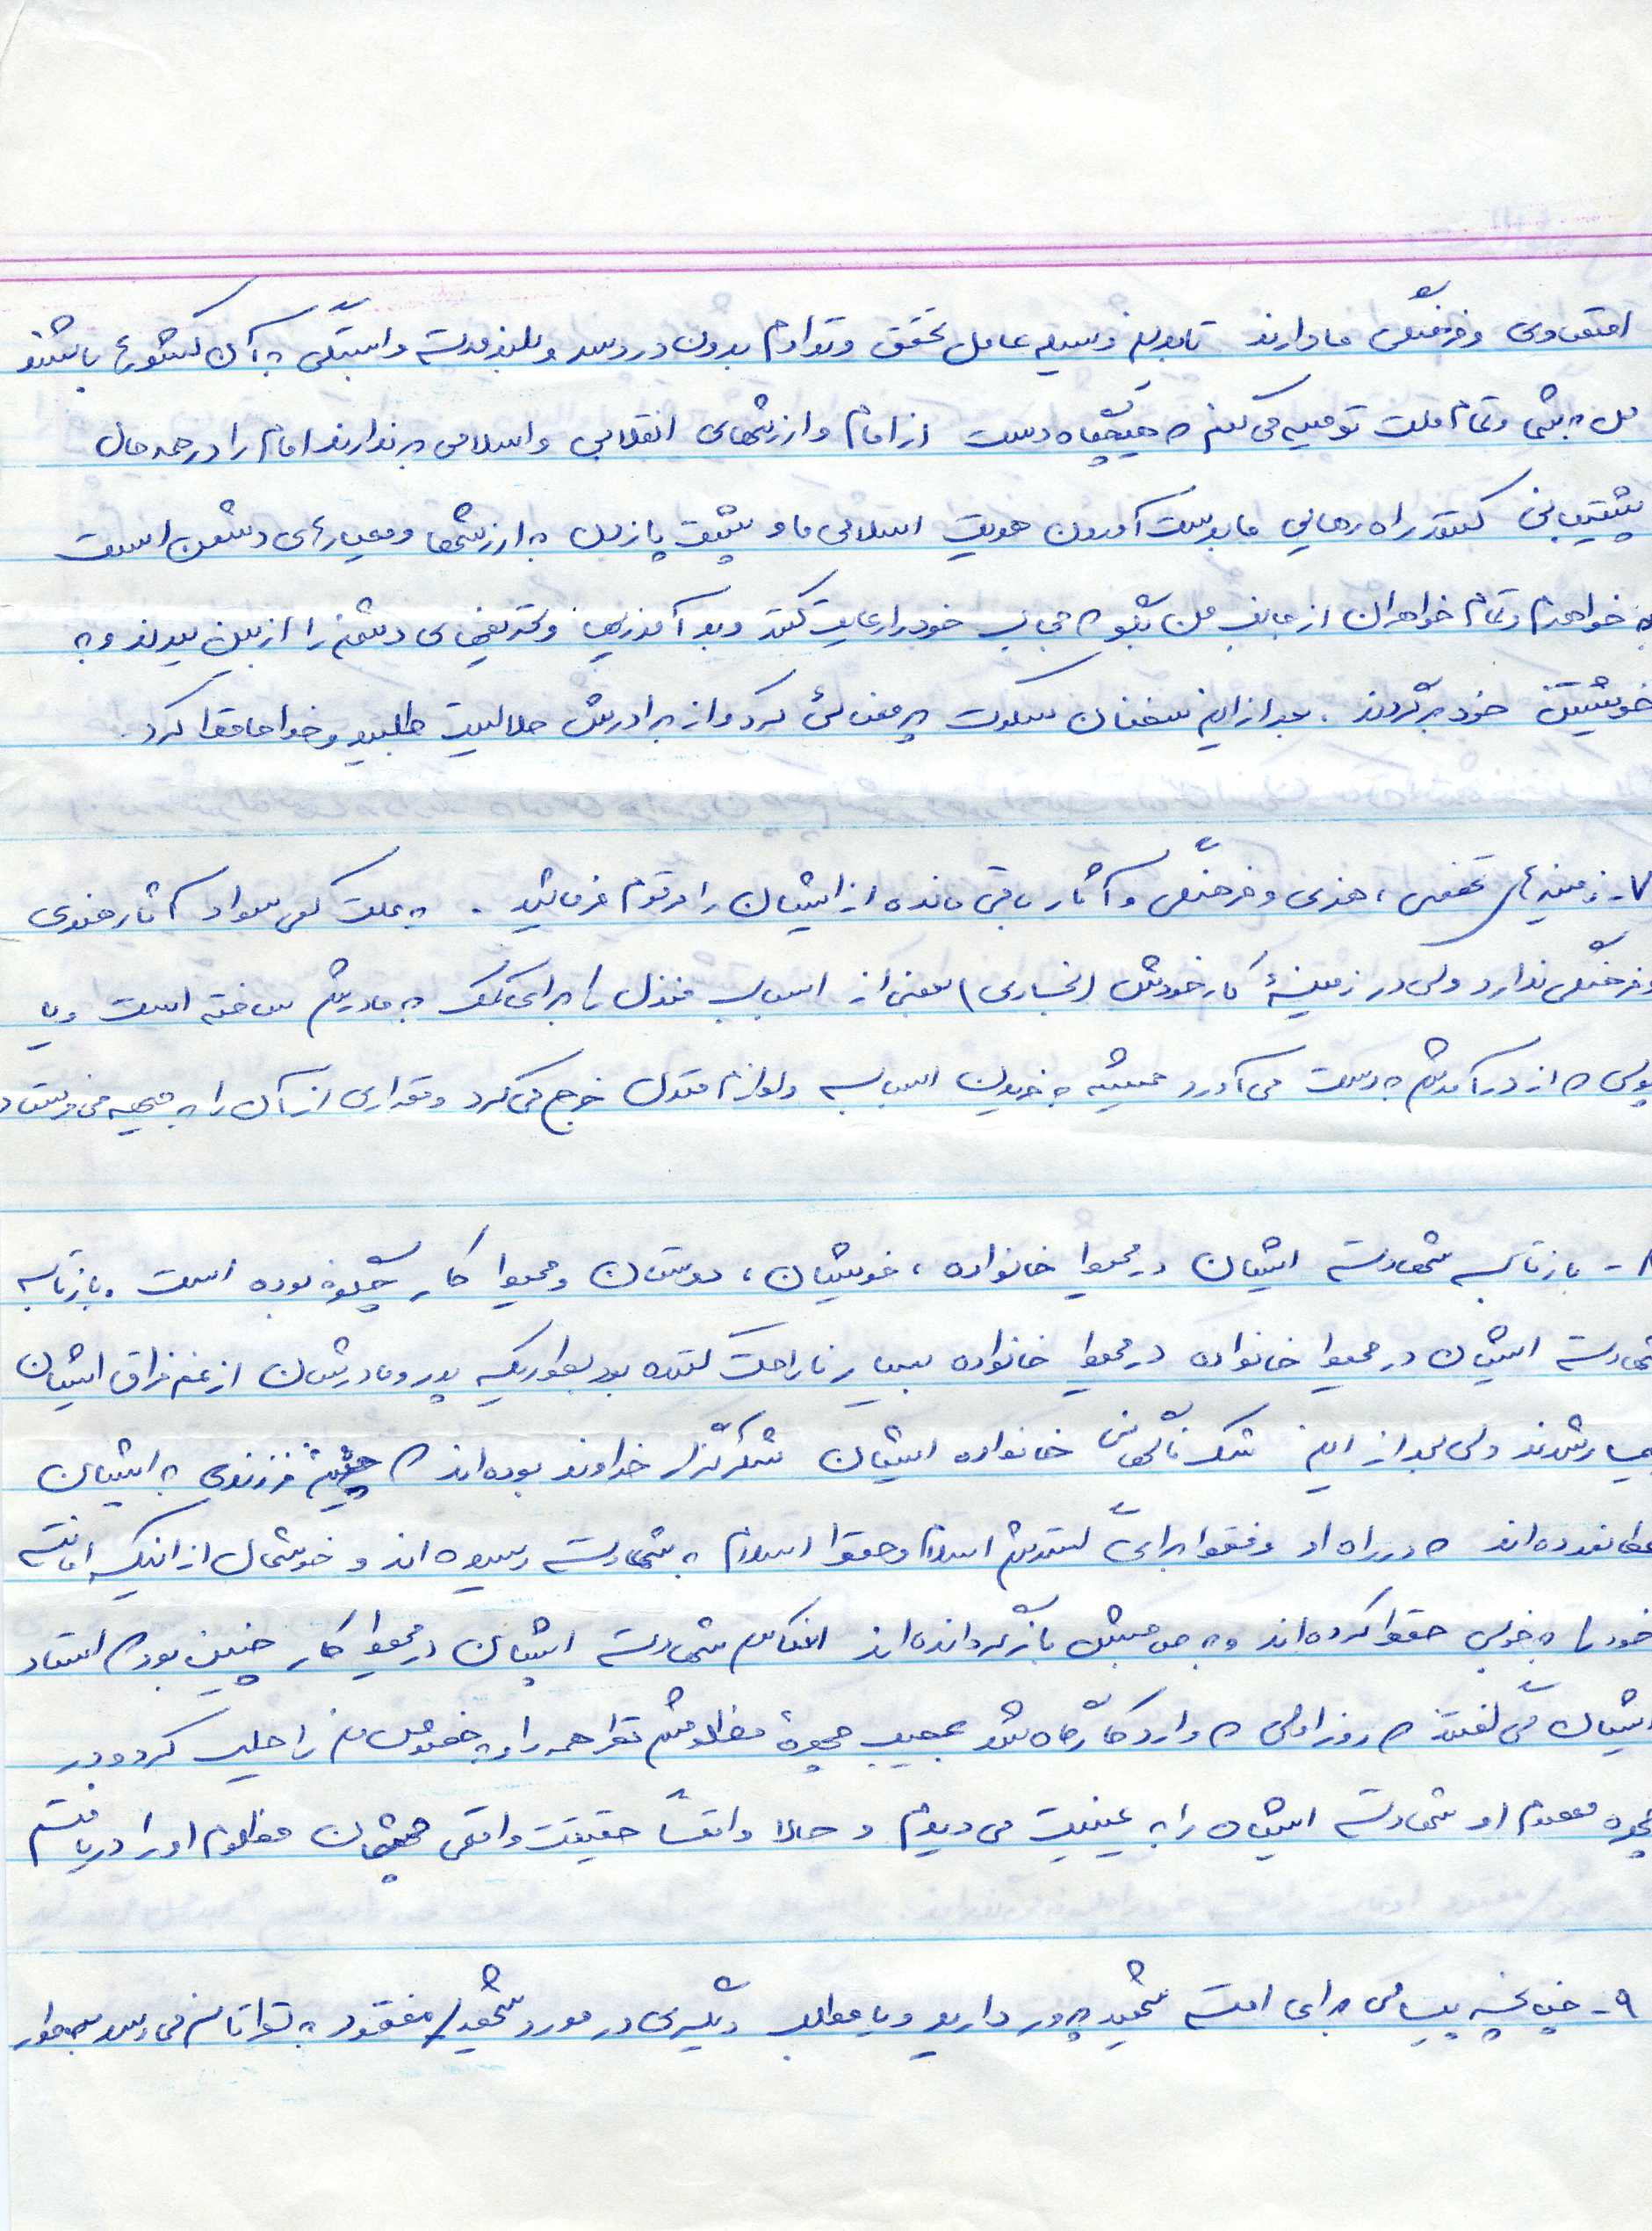 اقتصادی و فرهنگی ما دارند تا بدین وسیله عامل تحقق و تداوم بدون دردسر و بلند مدت وابستگی به آن کشورها باشند
من به شما و تمام ملت توصیه می کنم که هیچگاه دست از امام و ارزشهای انقلابی و اسلامی برندارند امام را در همه حال
پشتیبانی کنید راه رهایی ما بدست آمدن هویت اسلامی ما و پشت پا زدن به ارزشها و معیارهای دشمن است
به خواهرم و تمام خواهران از جانب من بگو که حجاب خود را رعایت کنید و بدآموزیها و تحریفهای دشمن را از بین ببرند و به
خویشتن خود برگردند . بعد از این سخنان سکوت پرمعنائی کرد و از برادرش حلالیت طلبید و خداحافظی کرد.
۷- زمینه های تخصصی ، هنری و فرهنگی و آثار باقی مانده از ایشان را مرقوم فرمائید . به علت کمی سواد آثار هنری
و فرهنگی ندارد ولی در زمینهٔ کار خودش (نجاری) بعضی از اسباب منزل را برای کمک به مادرش ساخته است و یا
پولی که از درآمدش به دست می آورد همیشه به خریدن اسباب و لوازم منزل خرج می کرد و مقداری از آن را به جبهه می فرستاد
۸- بازتاب شهادت ایشان در محیط خانواده ، خویشان ، دوستان و محیط کار چگونه بوده است . بازتاب
شهادت ایشان در محیط خانواده در محیط خانواده بسیار ناراحت کننده بود بطوریکه پدر و مادرشان از غم فراق ایشان
بیمار شدند ولی بعد از این شک ناگهانی خانواده ایشان شکرگزار خداوند بوده اند که چنین فرزندی به ایشان
عطا نموده اند که در راه او و فقط برای گسترش اسلام و حفظ اسلام به شهادت رسیده اند و خوشحال از اینکه امانت
خود را به خوبی حفظ کرده اند و به صاحبش بازگردانده اند انعکاس شهادت ایشان در محیط کار چنین بود که استاد
ایشان می گفتند که روز اولی که وارد کارگاه شد عجیب چهرهٔ مظلومش نظر همه را و به خصوص من را جلب کرد و در
چهره معصوم او شهادت ایشان را به عینیت می دیدم و حالا واقعاً حقیقت واقعی چشمان مظلوم او را دریافتم
۹- چنانچه پیامی برای امت شهید پرور دارید و یا مطالب دیگری در مورد شهید/مفقود به نظرتان می رسد